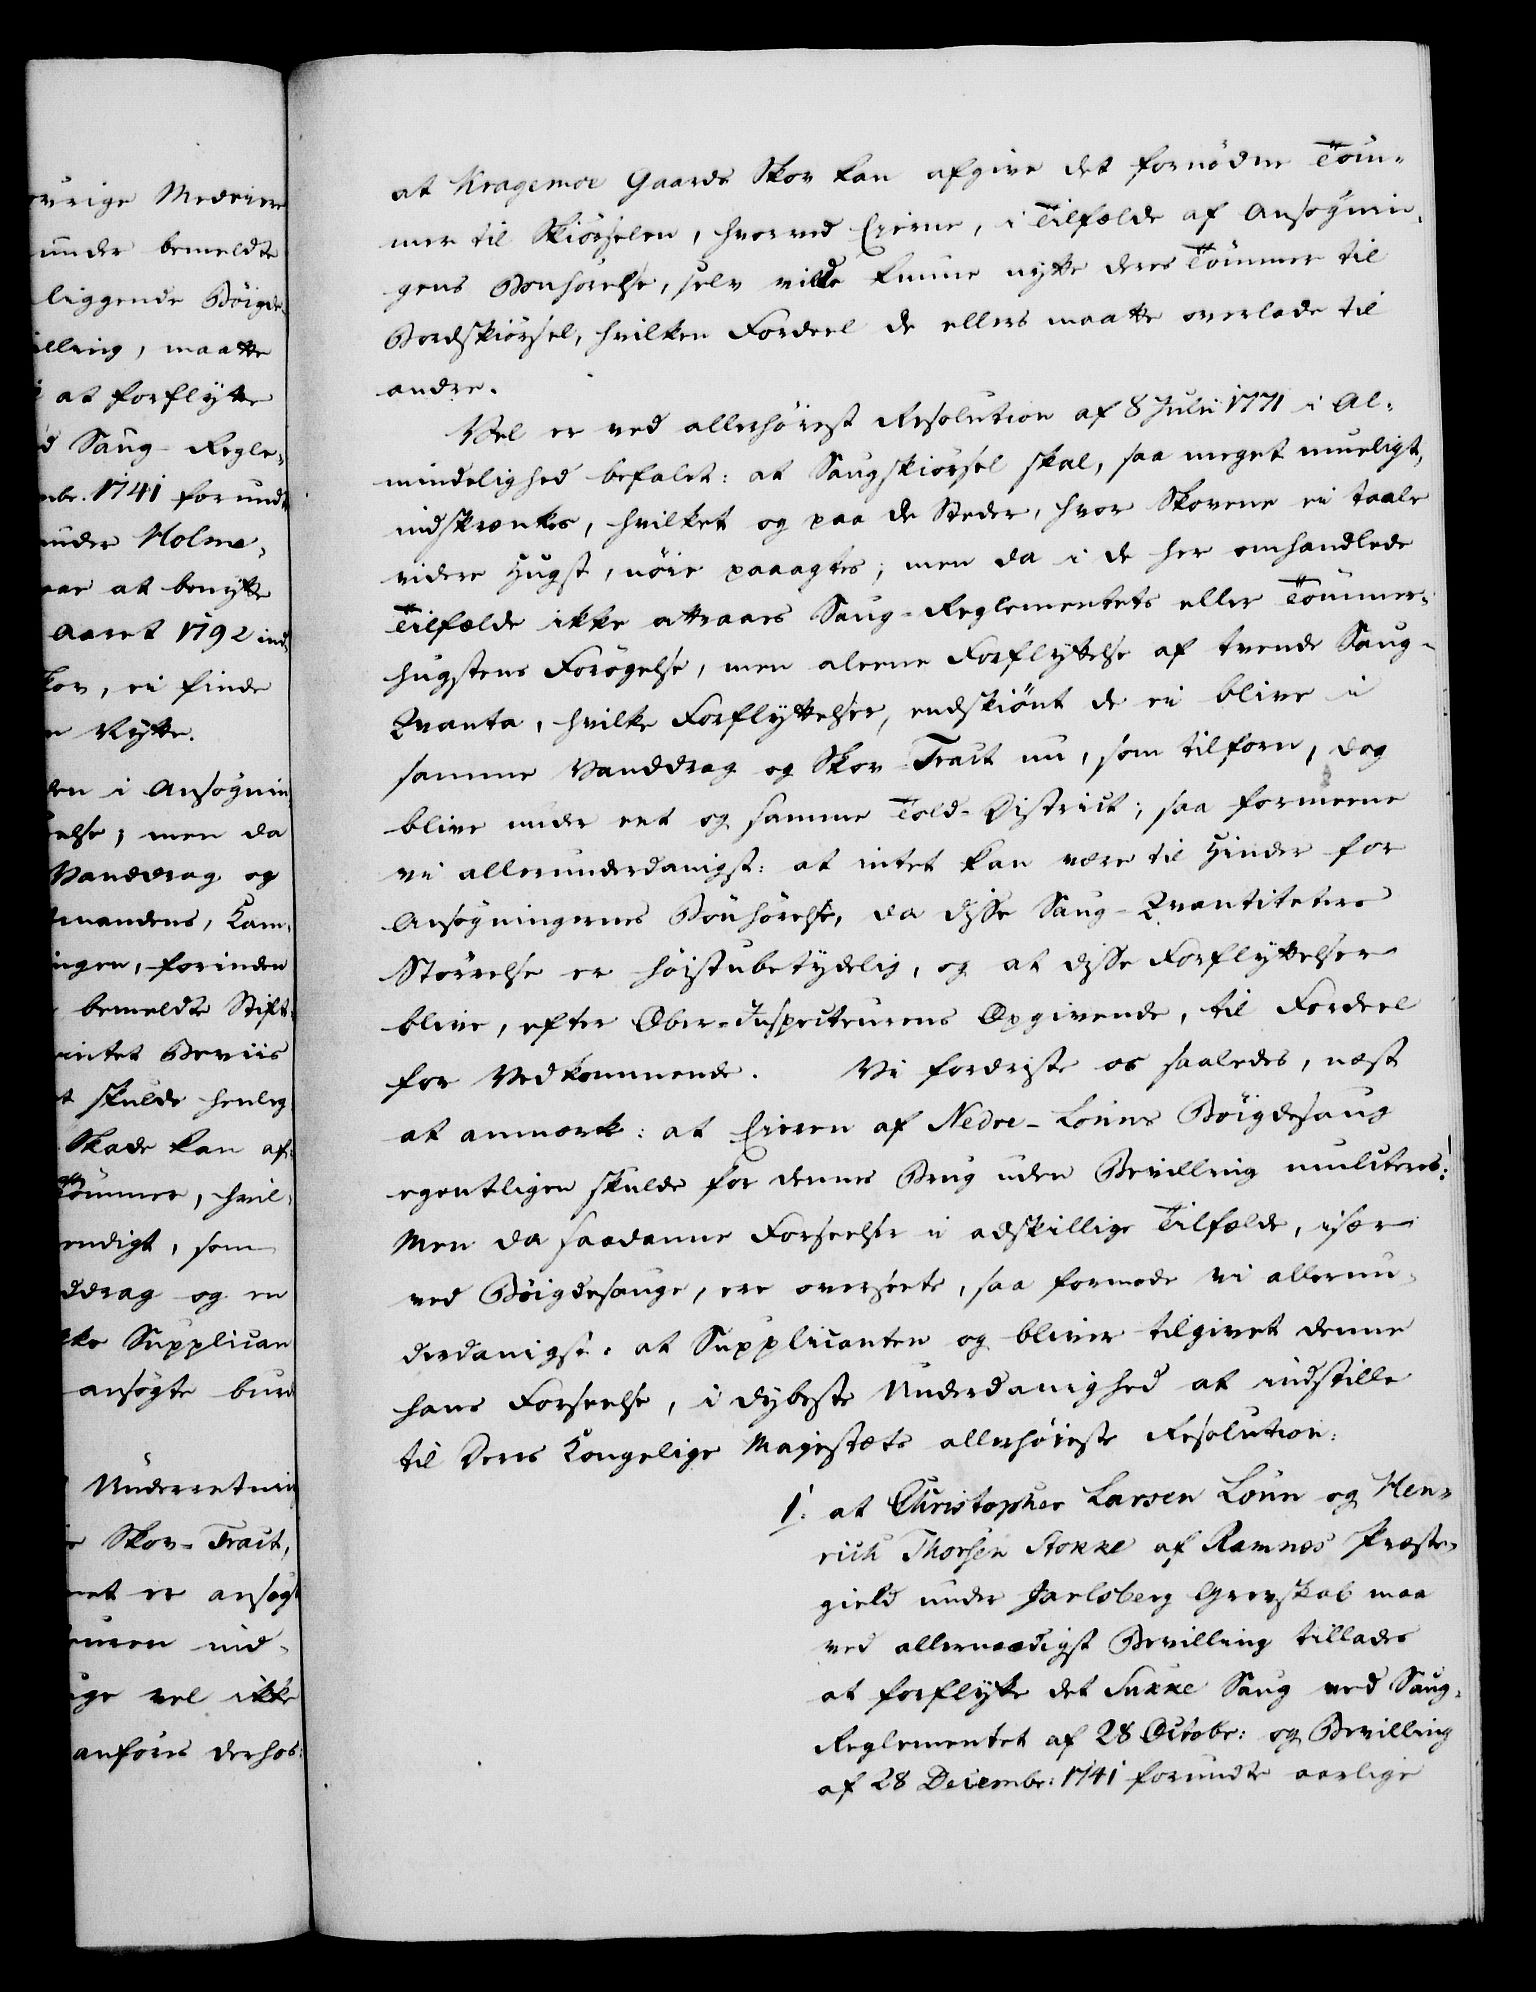 övrige Medeiere
under bemeldte
liggende Böigde-
illing, maatte
at forflytte
d Saug-Regle-
mbr. 1741 forundt
under Holme-
aar at benytte
Aaret 1792 ind-
kov, ei finde
n Nytte.
den i Ansøgnin-
else; men da
Vanddrag og
mandens, Kam-
ingen, forinden
bemeldte Stift-
intet Beviis
t skulde henleg-
Skade kan af-
Tömmer, hvil-
endigt, som
ddrag og en
kke Supplican
ansögte burd
Underretning
e Skov-Tract,
et er ansøgt
euren ind-
uge vel ikke
anföres derhos:
at Kragemoe Gaards Skov kan afgive det fornödne Töm-
mer til Skiörselen, hvorved Eierne, i Tilfælde af Ansøgnin-
gens Bönhörelse, selv vilde kunne nytte deres Tömmer til
Bordskiörsel, hvilken Fordeel de ellers maatte overlade til
andre.
Vel er ved allerhöiest Resolution af 8 Julii 1771 i Al-
mindelighed befalet: at Saugskiörsel skal, saa meget mueligt,
indskrænkes, hvilket og paa de Steder, hvor Skovene ei taale
videre Hugst, nöie paaagtes; men da i de her omhandlede
Tilfælde ikke attraaes Saug-Reglementets eller Tömmer-
hugstens Forögelse, men aleene Forflyttelse af tvende Saug-
Qvanta, hvilke Forflyttelser, endskiönt de ei blive i
samme Vanddrag og Skov-Tract nu, som tilforn, dog
blive under eet og samme Told-District; saa formeene
vi allerunderdanigst: at intet kan være til Hinder for
Ansøgningernes Bönhörelse, da disse Saug-Qvantiteters
Störrelse er höistubetydelig, og at disse Forflyttelser
blive, efter Ober-Inspecteurens Opgivende, til Fordeel
for Vedkommende. Vi fordriste os saaledes, næst
at anmærke: at Eieren af Nedre-Löuns Böigdesaug
egentligen skulde for dennes Brug uden Bevilling mulcteres:
Men da saadanne Forseelser i adskillige Tilfælde, især
ved Böigdesauge, ere overseete, saa formode vi allerun-
derdanigst: at Supplicanten og bliver tilgivet denne
hans Forseelse, i dybeste Underdanighed at indstille
til Deres Kongelige Majestæts allerhöieste Resolution:
1. at Christopher Larsen Löun og Hen-
rich Thorsen Stokke af Ramnes Præste-
gield under Jarlsberg Grevskab maa
ved allernaadigst Bevilling tillades
at forflytte det Sukke Saug ved Saug-
Reglementet af 28 Octobr: og Bevilling
af 28 Decembr: 1741 forundte aarlige